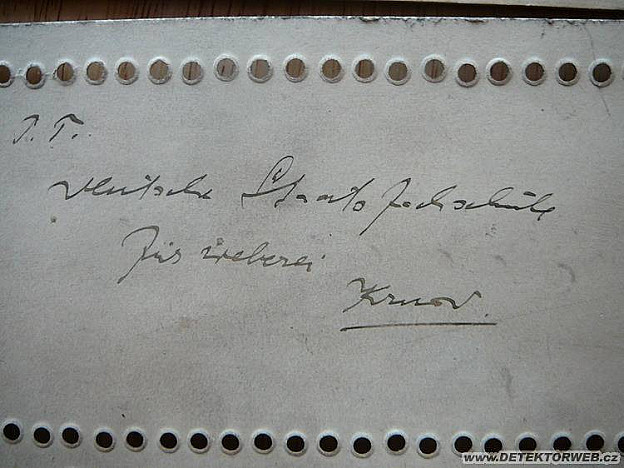 P. T.
Deutsche Staatsfachschule
für Weberei
Krnov.
www.DETEKTORWEB.cz